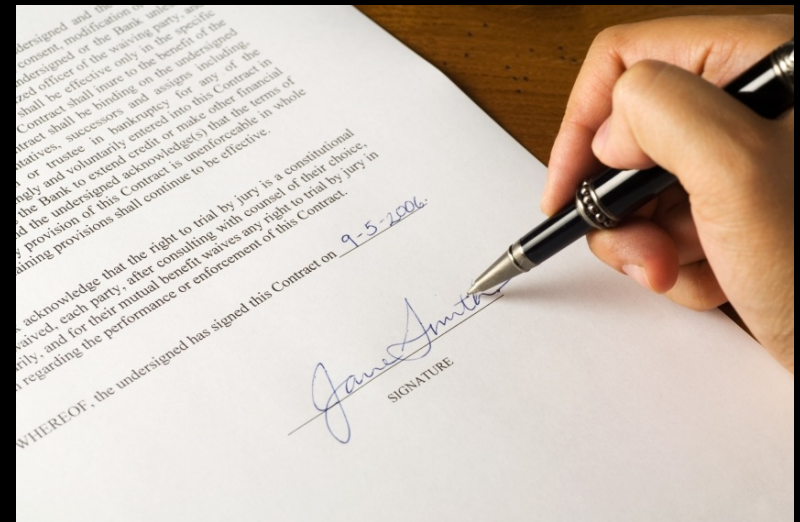 dersigned and the
consent, modification
dersigned or the Bank unless
zed officer of the waiving party, and
shall be effective only in the specific
Contract shall inure to the benefit of the
tract shall be binding on the undersigned
tatives, successors and assigns including,
or trustee in bankruptcy for any of the
ngly and voluntarily entered into this Contract in
the Bank to extend credit or make other financial
d the undersigned acknowledge(s) that the terms of
y provision of this Contract is unenforceable in whole
aining provisions shall continue to be effective.
acknowledge that the right to trial by jury is a constitutional
waived, each party, after consulting with counsel of their choice,
rily, and for their mutual benefit waives any right to trial by jury in
regarding the performance or enforcement of this Contract.
WHEREOF, the undersigned has signed this Contract on 9-5-2006.
Jane Smith
SIGNATURE